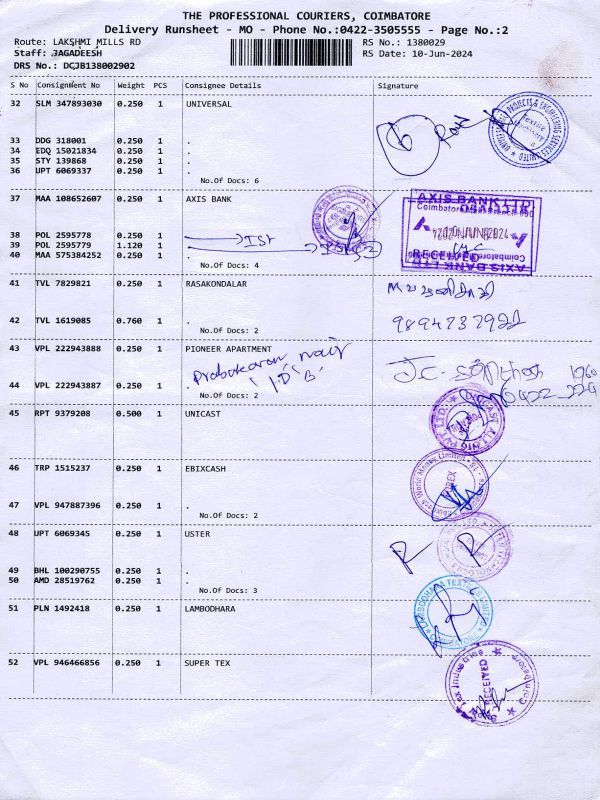 THE PROFESSIONAL COURIERS, COIMBATORE
Delivery Runsheet - MO - Phone No.:0422-3505555 - Page No.:2
Route: LAKSHMI MILLS RD RS No.: 1380029
Staff: JAGADEESH RS Date: 10-Jun-2024
DRS No.: DCJB138002902
S No Consignment No Weight PCS Consignee Details Signature
32 SLM 347893030 0.250 1 UNIVERSAL
33 DDG 318001 0.250 1 .
34 EDQ 15021834 0.250 1 .
35 STY 139868 0.250 1 .
36 UPT 6069337 0.250 1 .
No.Of Docs: 6
37 MAA 108652607 0.250 1 AXIS BANK
AXIS BANK LTD
38 POL 2595778 0.250 1 . IST
39 POL 2595779 1.120 1 .
RECEIVED
40 MAA 575384252 0.250 1 .
AXIS BANK LTD
No.Of Docs: 4
41 TVL 7829821 0.250 1 RASAKONDALAR
42 TVL 1619085 0.760 1 .
No.Of Docs: 2
43 VPL 222943888 0.250 1 PIONEER APARTMENT
Prabakaran nair
44 VPL 222943887 0.250 1 .
No.Of Docs: 2
45 RPT 9379208 0.500 1 UNICAST
46 TRP 1515237 0.250 1 EBIXCASH
47 VPL 947887396 0.250 1 .
No.Of Docs: 2
48 UPT 6069345 0.250 1 USTER
R R
49 BHL 100290755 0.250 1 .
50 AMD 28519762 0.250 1 .
No.Of Docs: 3
51 PLN 1492418 0.250 1 LAMBODHARA
LAMBODHARA TEXTILES LIMITED
COIMBATORE
52 VPL 946466856 0.250 1 SUPER TEX
RECEIVED